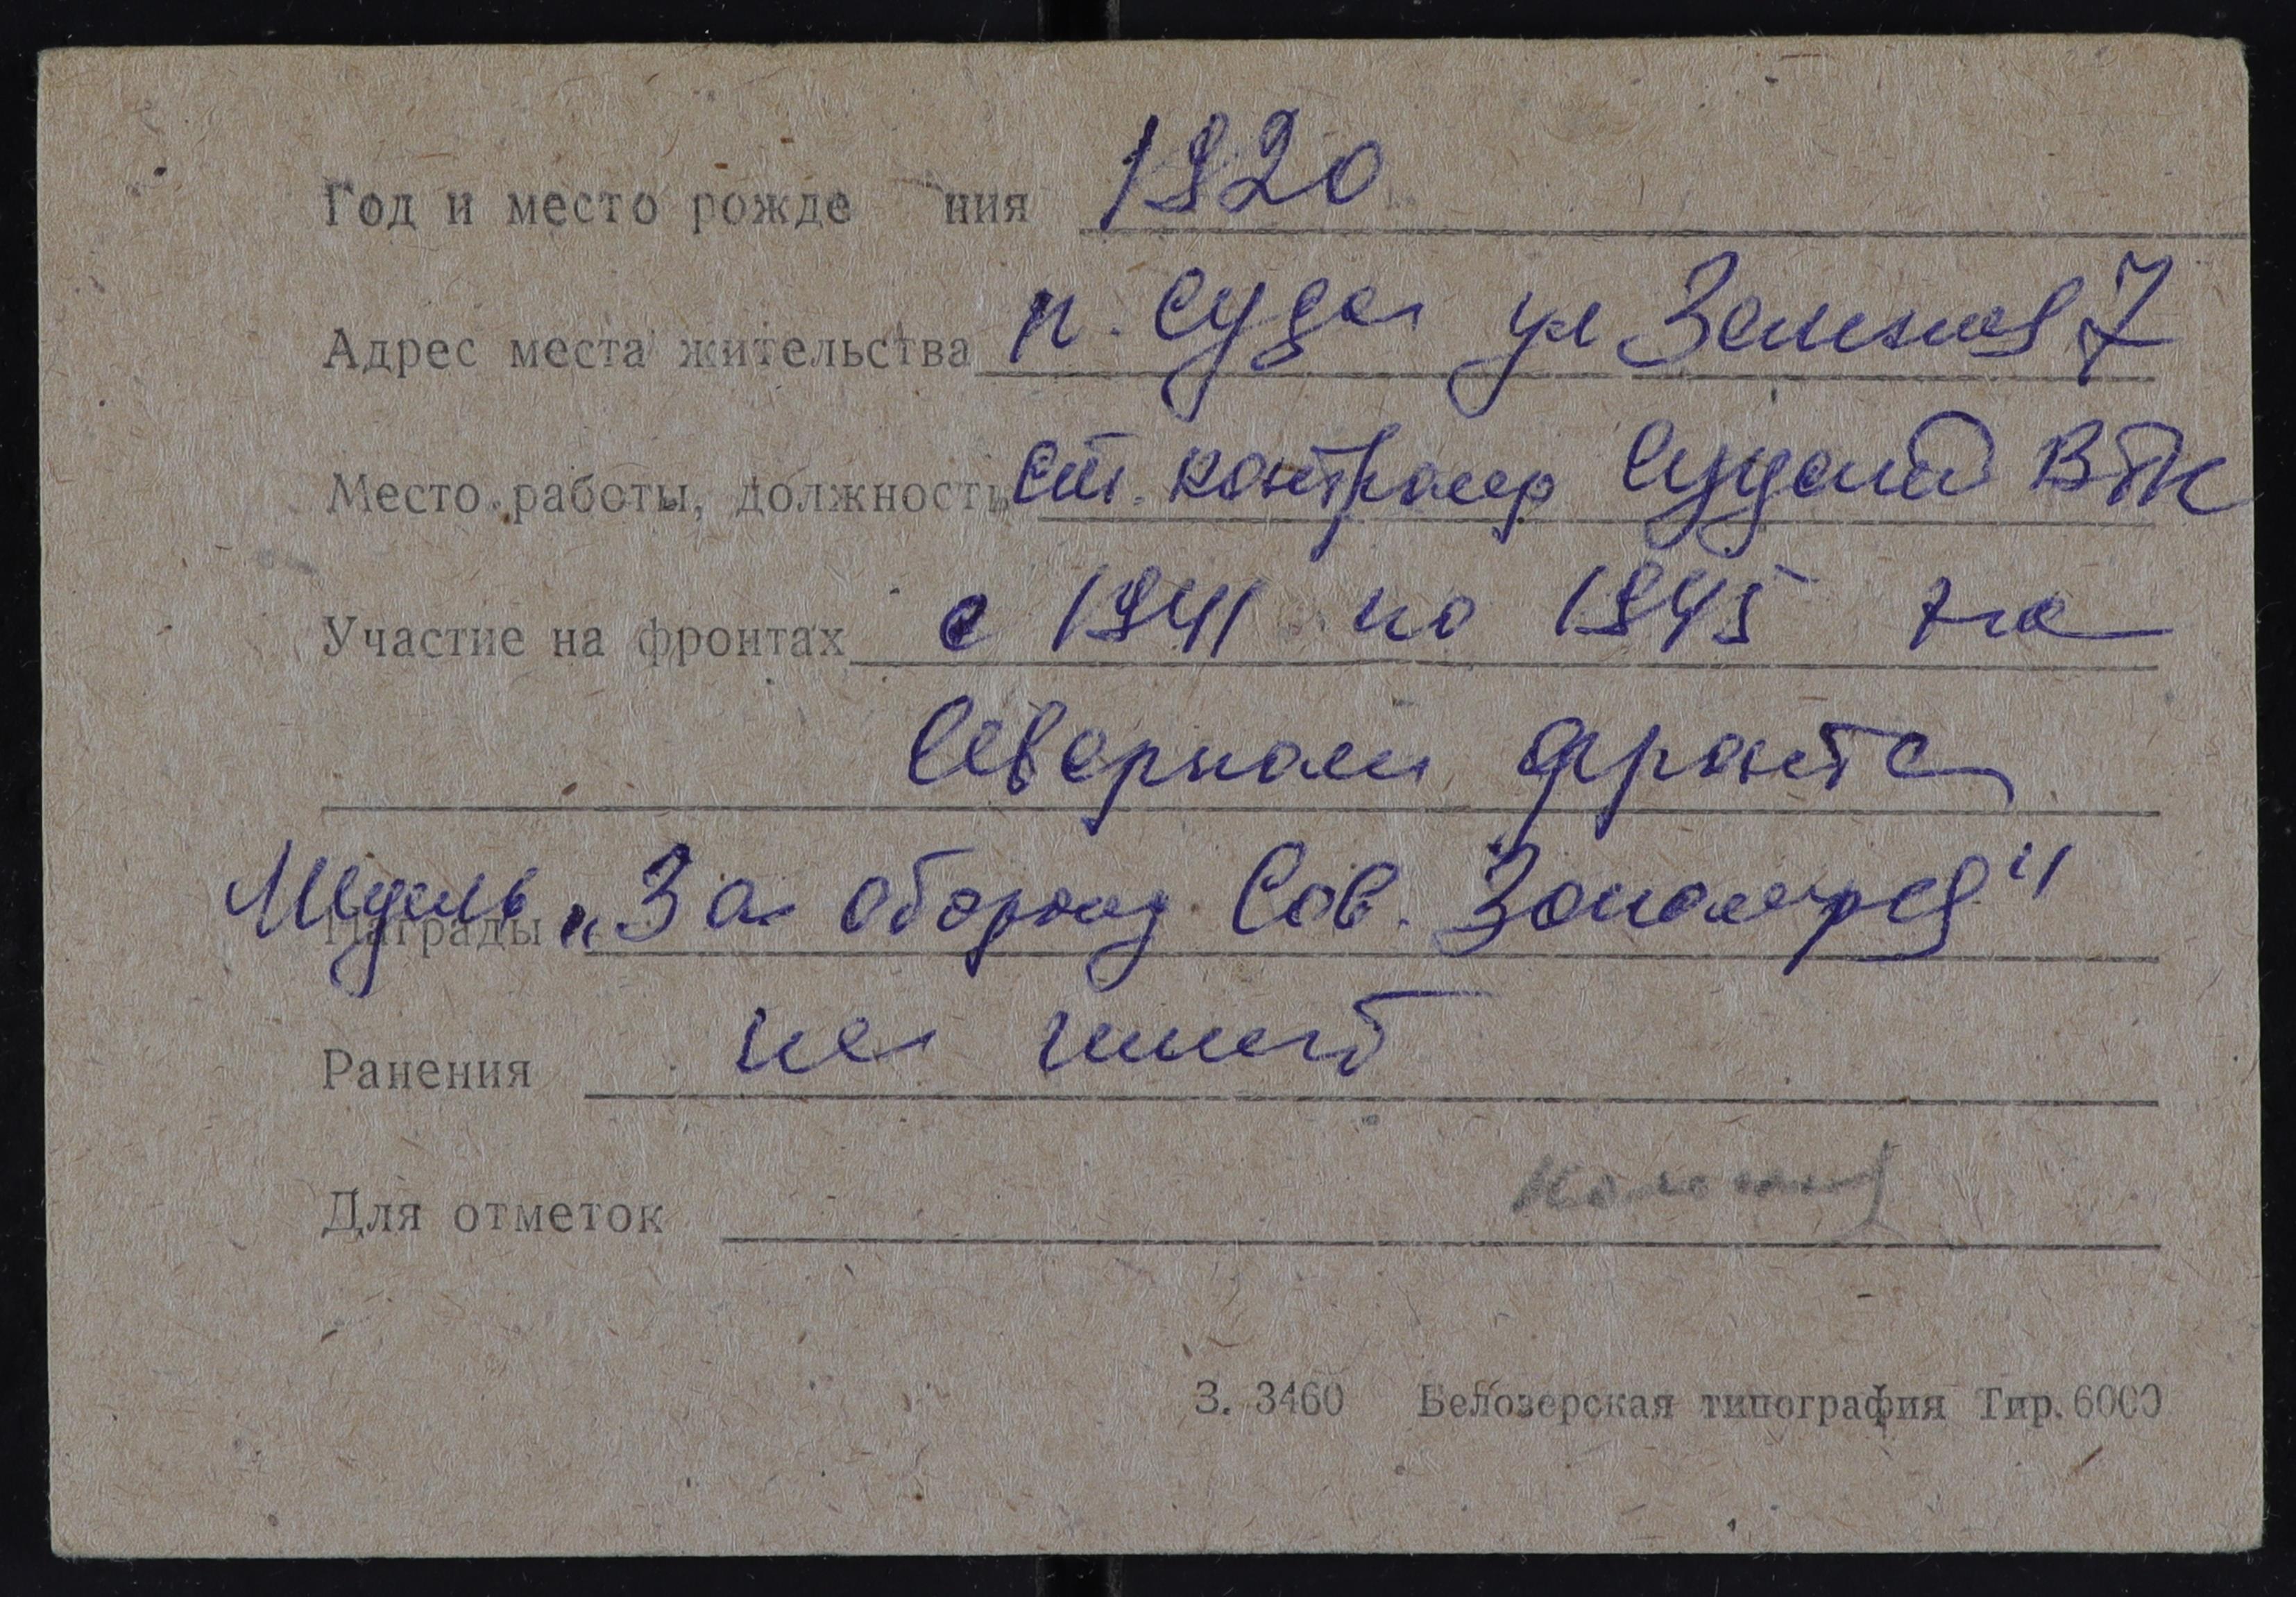 Год и место рожде ния 1920
Адрес места жительства п. Суда ул Зеленая 7
Место работы, должность ст. контролер Судской ВТК
Участие на фронтах с 1941 по 1945 на
Северном фронте
Награды Медаль „За оборону Сов. Заполярья"
Ранения не имеет
Для отметок
З. 3460 Белозерская типография Тир. 6000